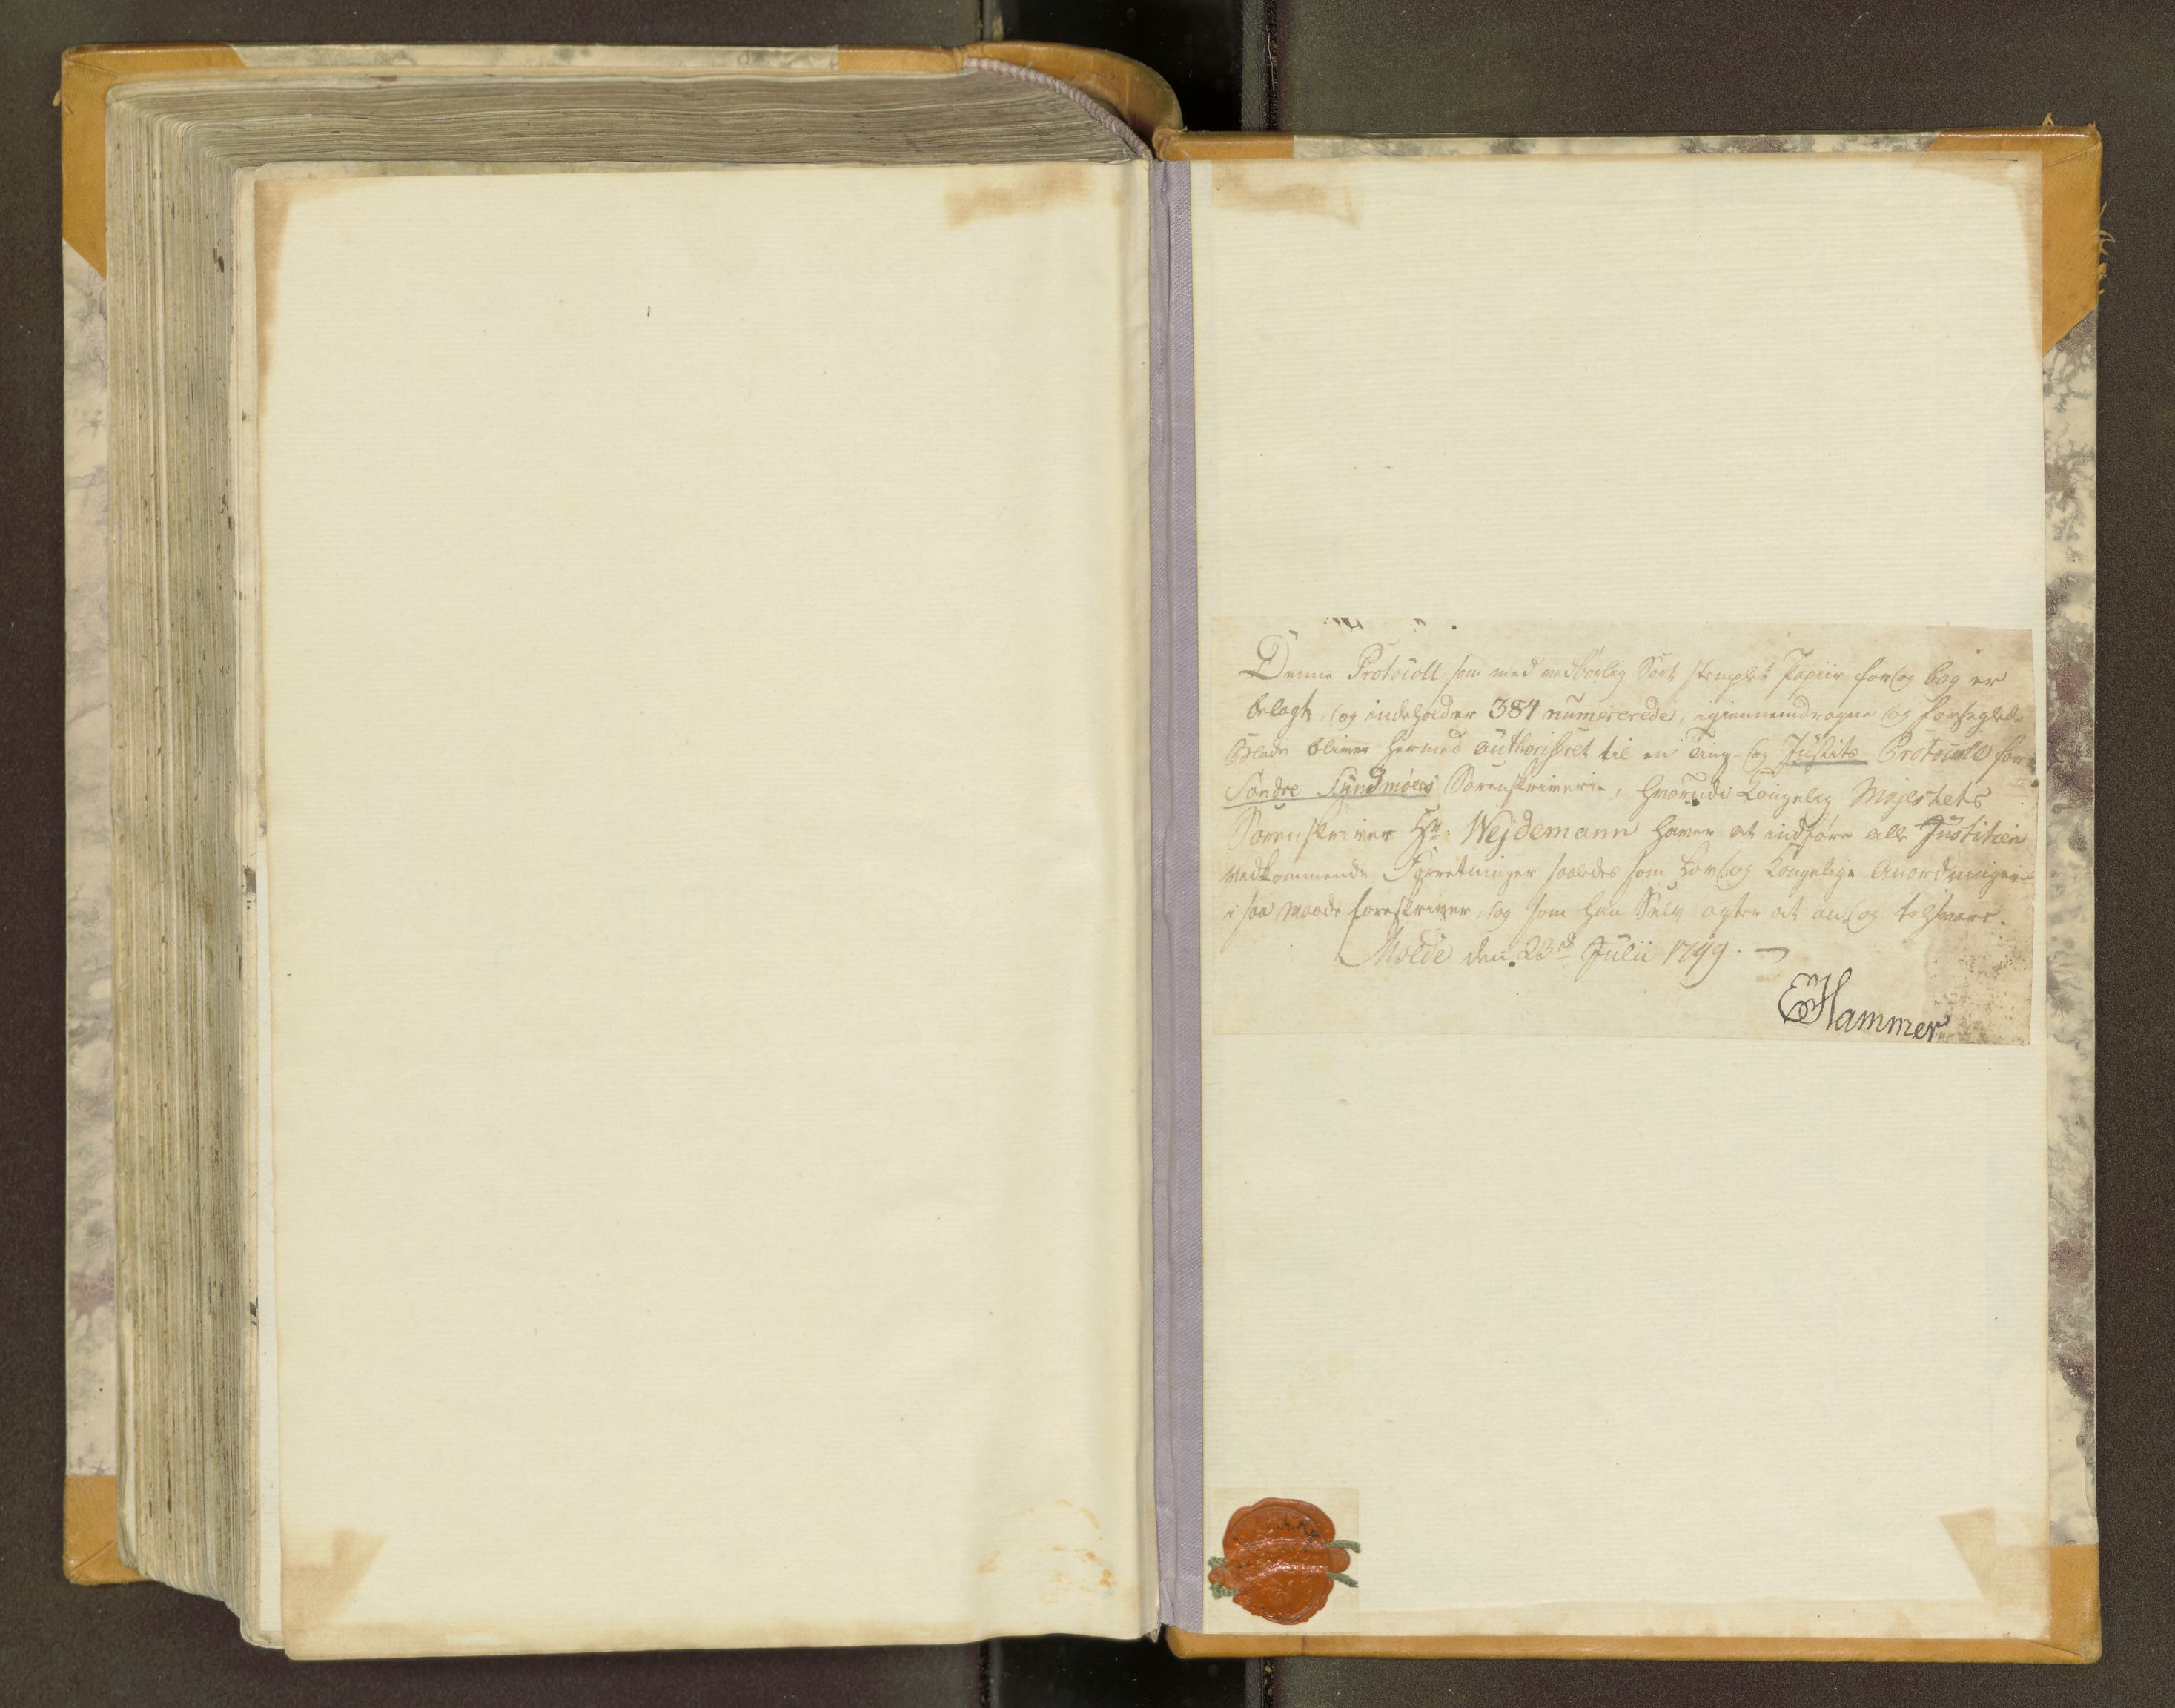 Denne Protocoll som med vedbørlig Sort stemplet Papiir for og bag er
belagt, og indeholder 384 numererede, igiennemdragne og forseglede
Blade bliver hermed authoriseret til en Ting- og Justits Protocoll for
Søndre Sundmøers Sorenskriverie, hvorudi Kongelig Majestets
Sorenskriver Hr. Wejdemann haver at indføre alle Justitien
vedkommende Forretninger saaledes som Lov og Kongelige Anordninger
i saa maade foreskriver, og som han Selv agter at an og tilsvare.
Molde den 23d Julii 1799.
EHammer